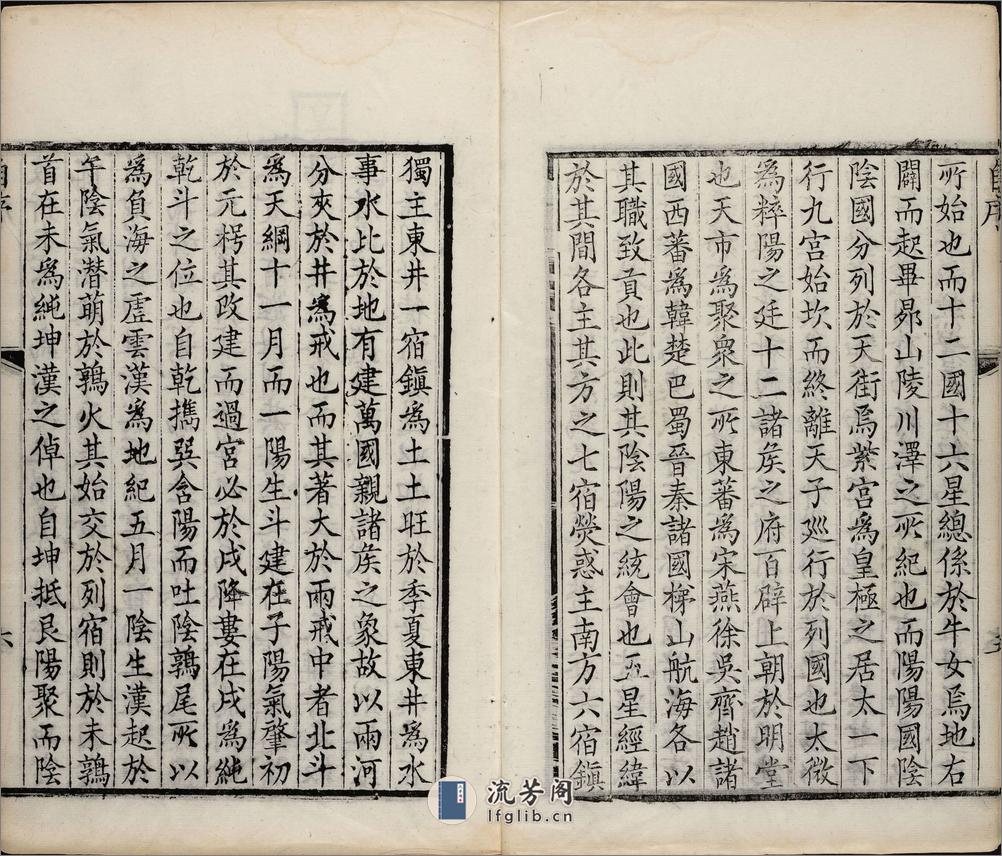 自序
所始也而十二國十六星總係於牛女焉地右
闢而起畢昴山陵川澤之所紀也而陽陽國陰
陰國分列於天街焉紫宮爲皇極之居太一下
行九宮始坎而終離天子廵行於列國也太微
爲粹陽之廷十二諸矦之府百辟上朝於明堂
也天市爲聚衆之所東蕃爲宋燕徐吳齊趙諸
國西蕃爲韓楚巴蜀晉秦諸國梯山航海各以
其職致貢也此則其陰陽之統會也五星經緯
於其間各主其方之七宿熒惑主南方六宿鎮
獨主東井一宿鎮爲土土旺於季夏東井爲水
事水比於地有建萬國親諸矦之象故以兩河
分夾於井爲戒也而其著大於兩戒中者北斗
爲天綱十一月而一陽生斗建在子陽氣肇初
於元枵其改建而過宮必於戌降婁在戌爲純
乾斗之位也自乾擕巽含陽而吐陰鶉尾所以
爲負海之虛雲漢爲地紀五月一陰生漢起於
午陰氣潛萌於鶉火其始交於列宿則於未鶉
首在未爲純坤漢之倬也自坤抵艮陽聚而陰
六
流芳阁
lfglib.cn